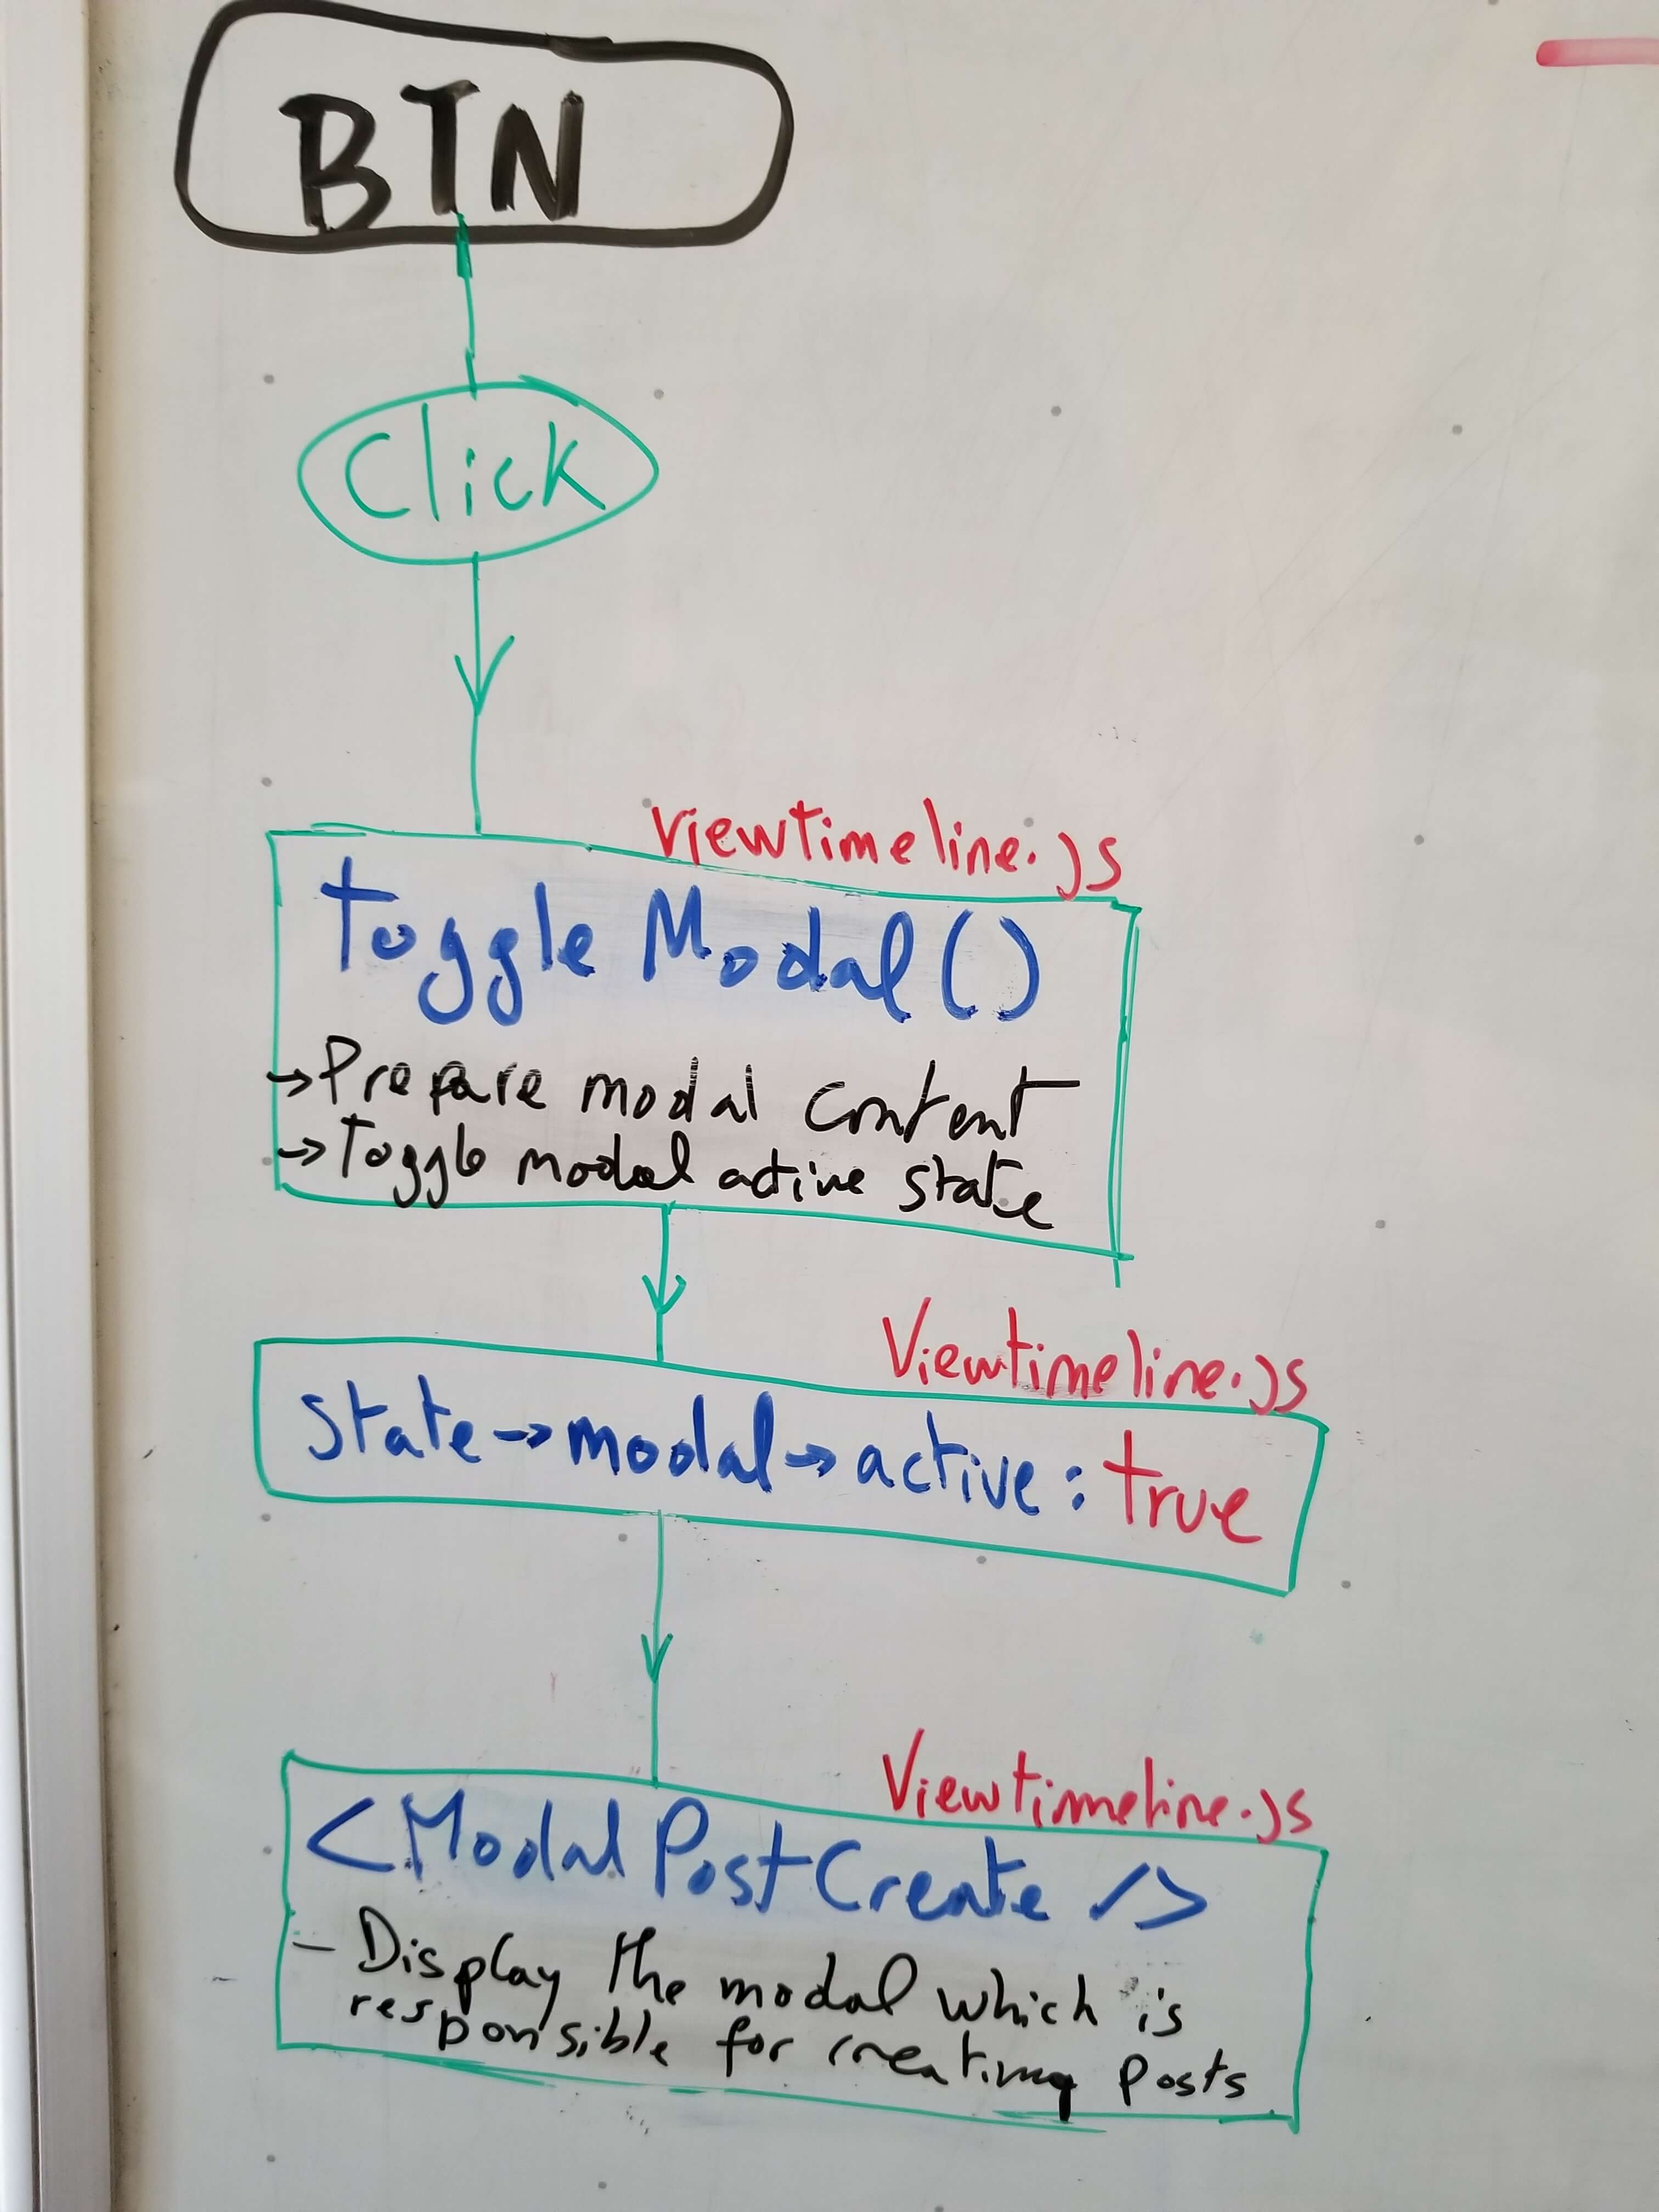 BTN
Click
Viewtimeline.js
toggleModal()
→ Prepare modal content
→ Toggle modal active state
Viewtimeline.js
state → modal → active : true
Viewtimeline.js
<ModalPostCreate />
- Display the modal which is
responsible for creating posts